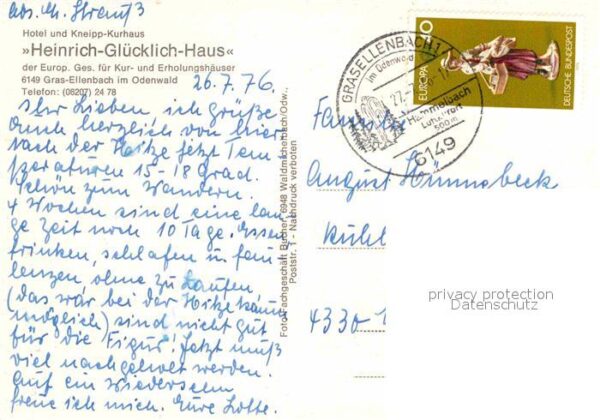 Abs. M. Strauß
Hotel und Kneipp-Kurhaus
»Heinrich-Glücklich-Haus«
der Europ. Ges. für Kur- und Erholungshäuser
6149 Gras-Ellenbach im Odenwald
Telefon: (06207) 24 78
26.7.76.
Ihr Lieben, ich grüße
Euch herzlich von hier
nach der Hitze jetzt Tem
peraturen 15-18 Grad.
Schön zum Wandern.
4 Wochen sind eine lan
ge Zeit noch 10 Tage. Essen
trinken, schlafen u faul
lenzen, ohne zu Laufen
(das war bei der Hitze kaum
möglich) sind nicht gut
für die Figur! Jetzt muß
viel nachgeholt werden.
Auf ein Wiedersehn
freue ich mich. Eure Lotte.
Foto-Fachgeschäft Bucher, 6948 Waldmichelbach/Odw.,
Poststr. 1 - Nachdruck verboten
GRASELLENBACH 1
im Odenwald
Hammelbach
Luftkurort
500 m
6149
EUROPA
DEUTSCHE BUNDESPOST
Familie
August Hünnebeck
Kühl
4330-
privacy protection
Datenschutz